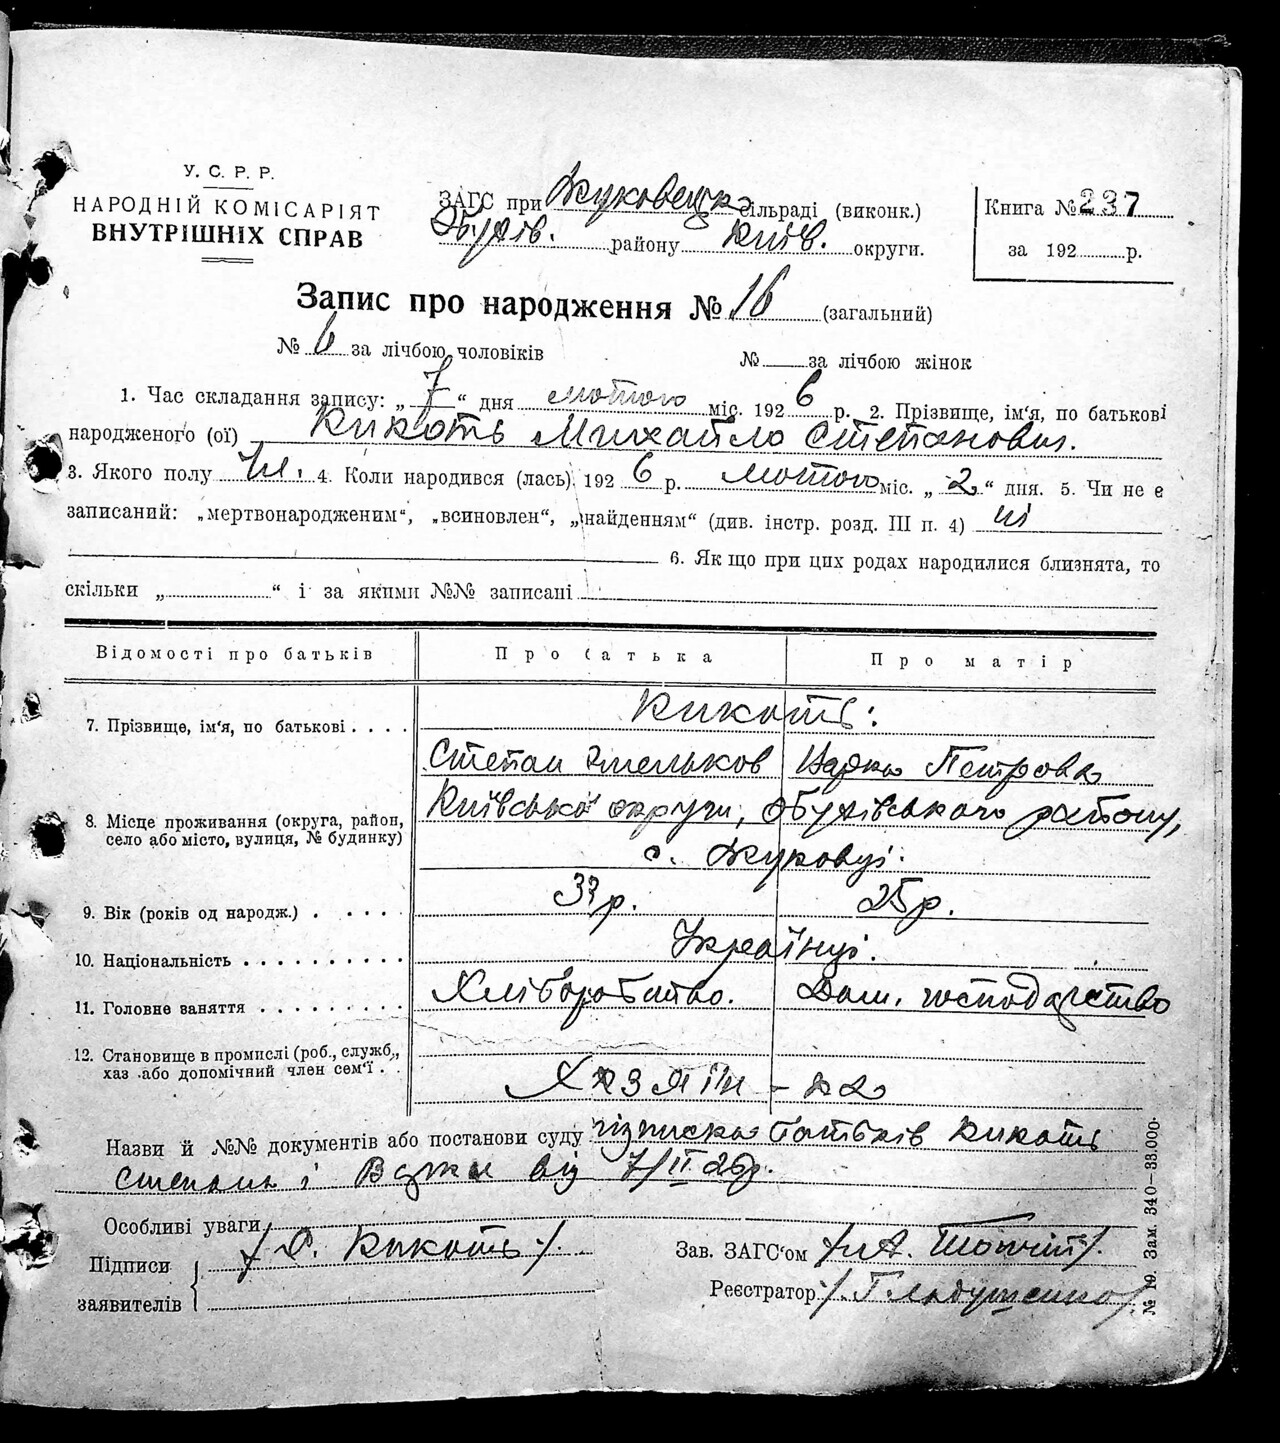 У. С. Р. Р.
НАРОДНІЙ КОМІСАРІЯТ
ВНУТРІШНІХ СПРАВ
ЗАГС при Жуковецьк. сільраді (виконк.)
Обухів. району Київ. округи.
Книга № 237
за 192 р.
Запис про народження № 16 (загальний)
№ 6 за лічбою чоловіків № за лічбою жінок
1. Час складання запису: „ 7 “ дня лютого міс. 192 6 р. 2. Прізвище, ім'я, по батькові
народженого (ої) Кикоть Михайло Степанович.
3. Якого полу Чл. 4. Коли народився (лась) 192 6 р. лютого міс. „ 2 “ дня. 5. Чи не є
записаний: „мертвонародженим“, „всиновлен“, „найденням“ (див. інстр. розд. III п. 4) ні
6. Як що при цих родах народилися близнята, то
скільки „ “ і за якими №№ записані
Відомості про батьків Про батька Про матір
7. Прізвище, ім'я, по батькові . . . . Кикоть:
Степан Омельков Петрова
8. Місце проживання (округа, район, село або місто, вулиця, № будинку) Київської округи, Обухівського району,
с. Жуковці.
9. Вік (років од народж.) . . . . . 33 р. 25 р.
10. Національність . . . . . . . . . . Українці.
11. Головне заняття . . . . . . . . . Хліборобство. Дом. господарство
12. Становище в промислі (роб., служб., хаз. або допомічний член сем'ї . . Хазяїн - ка
Назви й №№ документів або постанови суду підписка батьків Кикоть
Степана і від 7/II 26р.
Особливі уваги
Підписи заявителів /С. Кикоть/.
Зав. ЗАГС'ом
Реєстратор
№ 19. Зам. 340—33.000.